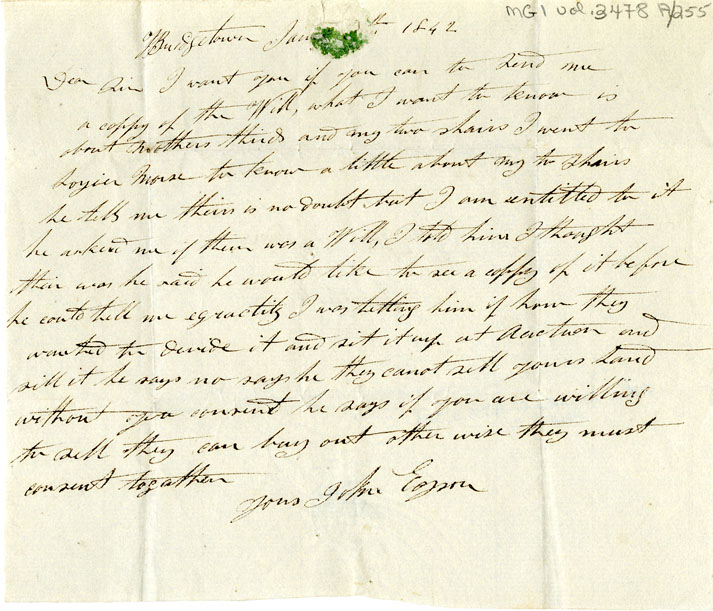 MG1 vol. 3478 A/255
Bridgetown Jan th 1842
Dear Sir I want you if you can to send me
a coppy of the Will, what I want to know is
about Mothers thirds and my two shairs I went to
Loyier Morse to know a little about my to shairs
he tells me theirs is no doubt but I am entitled to it
he asked me if their was a Will, I told him I thought
their was he said he would like to see a coppy of it before
he could tell me egsactily I was telling him if how they
wanted to devide it and sit it up at Auction and
sill it he says no says he they canot sell yours Land
without you consent he says if you are willing
to sell they can buy out other wise they must
consent togather
yours John Easson